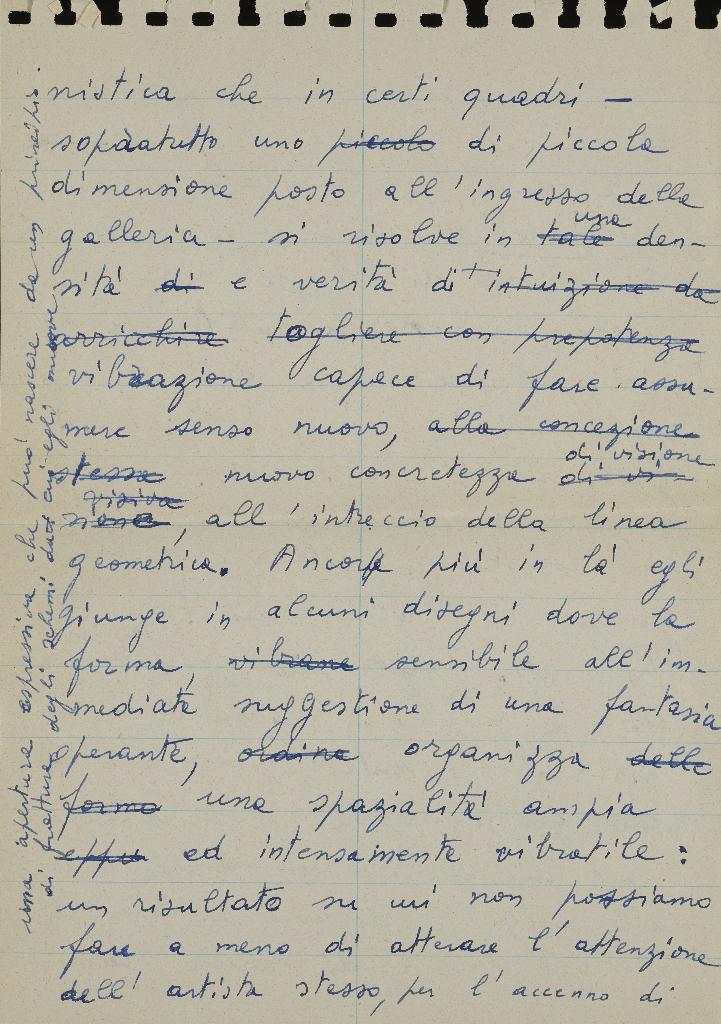 nistica che in certi quadri —
sopratutto uno piccolo di piccola
dimensione posto all'ingresso della
galleria — si risolve in tale una den-
sità di e verità di intuizione da
arricchire togliere con prepotenza
vibrazione capace di fare assu-
mere senso nuovo, alla concezione
stessa nuovo concretezza di vi- di visione
sione visiva, all'intreccio della linea
geometrica. Ancor più in là egli
giunge in alcuni disegni dove la
forma, vibrane sensibile all'im-
mediate suggestione di una fantasia
operante, ordina organizza delle
forme una spazialità ampia
eppu ed intensamente vibratile:
un risultato su cui non possiamo
fare a meno di atterare l'attenzione
dell'artista stesso, per l'accenno di
una apertura espressiva che può nascere da un principio
di frattura degli schemi dai cui egli muove